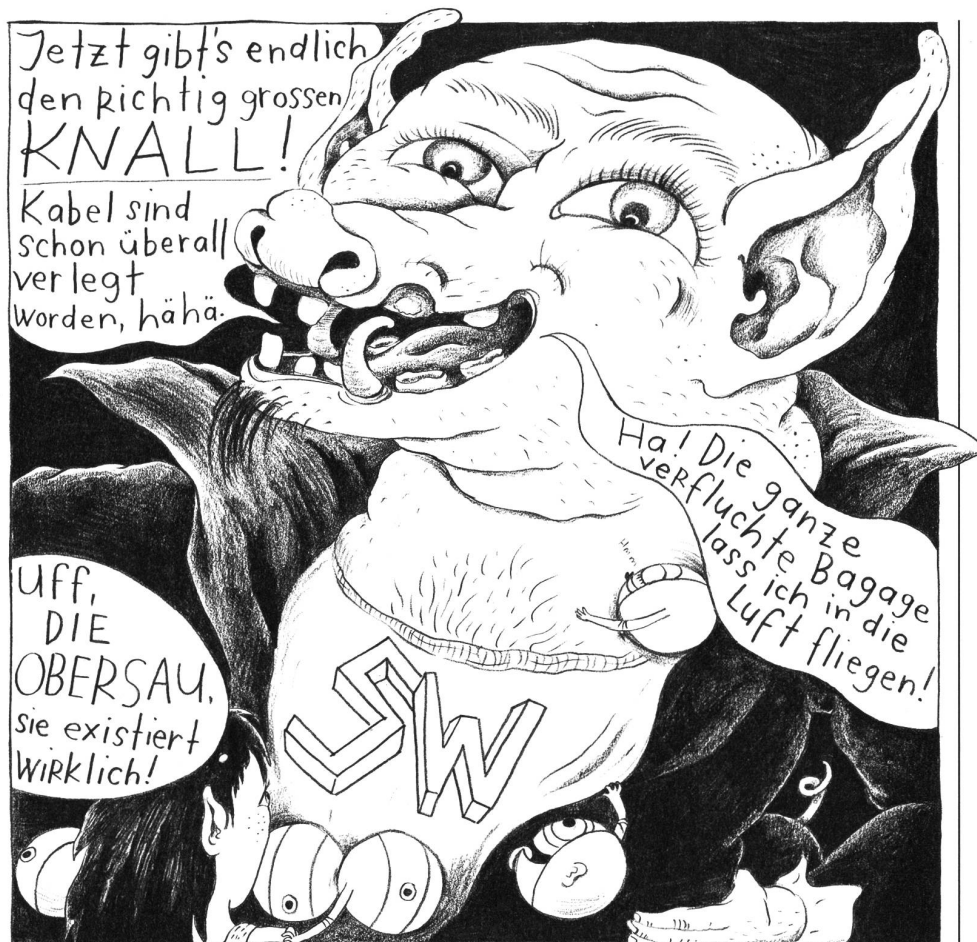 Jetzt gibt's endlich
den richtig grossen
KNALL!
Kabel sind
schon überall
verlegt
worden, hähä.
Ha! Die ganze
verfluchte Bagage
lass ich in die
Luft fliegen!
Uff,
DIE
OBERSAU,
sie existiert
wirklich!
SW